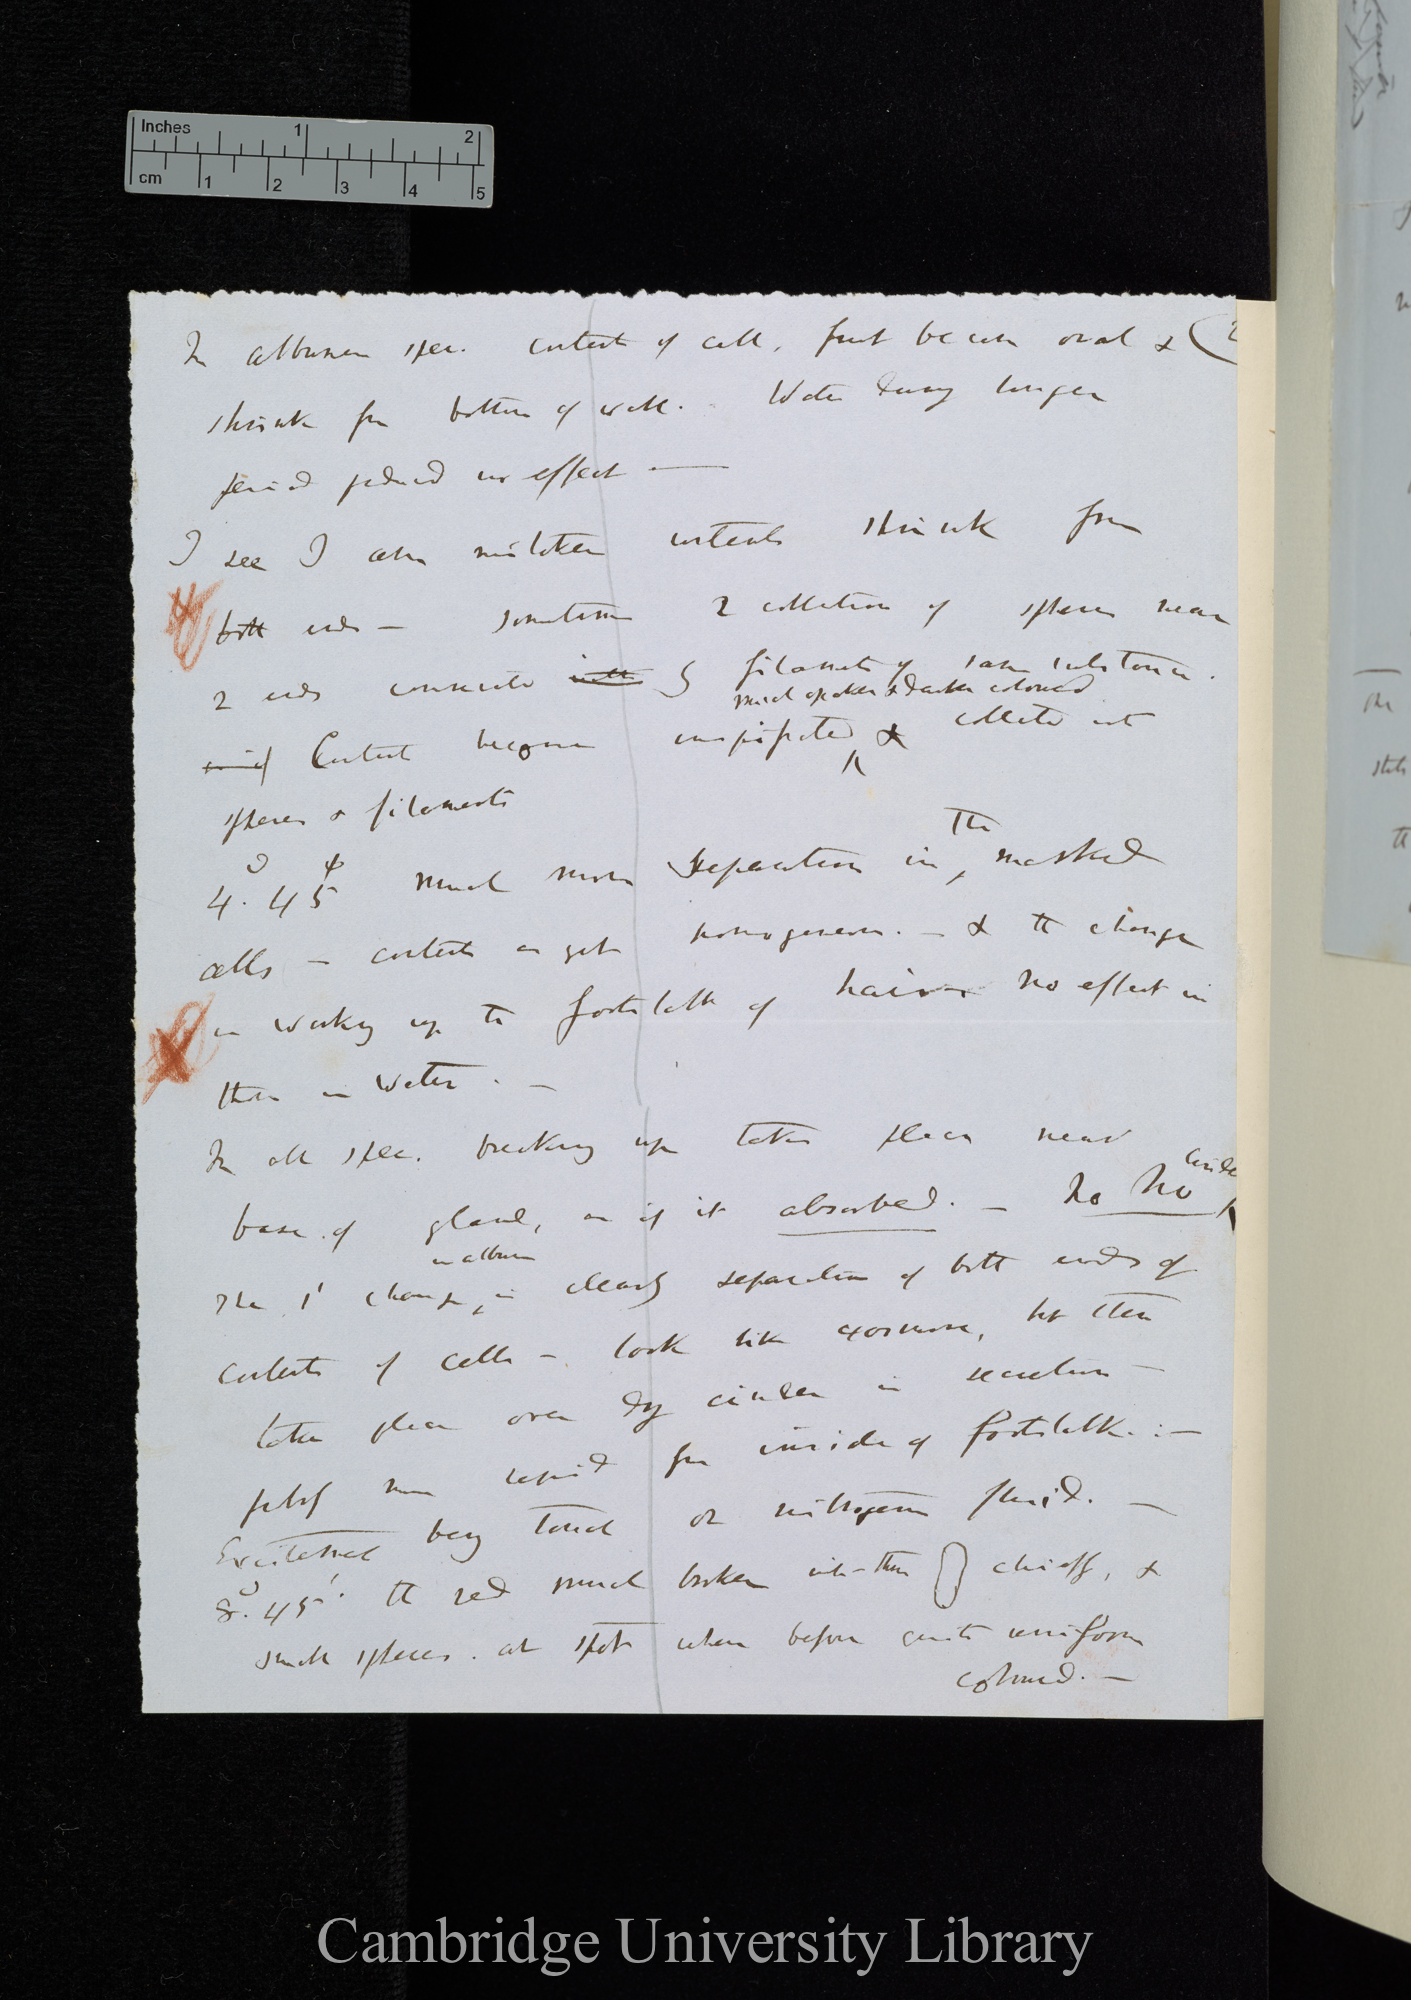 Inches 1 2
cm 1 2 3 4 5
In albumen spec. contents of cell, first become oval & (2
shrink from bottom of wall. Water during longer
period produced no effect —
I see I am mistaken contents shrink from
both ends — sometimes 2 collections of spheres near
2 ends connected by filaments of same substance.
much opaker & darker coloured
Contents become inspissated & collected into
spheres & filaments
4. 45 much more separation in the marked
cells — contents as yet homogeneous. — & the change
is working up the footstalk of hairs no effect in
those in water. —
In all spec. breaking up takes place near
base of gland, as if it absorbed. — No No cinder
The 1st change, in album is clearly separation of both ends of
contents of cells — look like exosmose, but then
takes place over dry cinder in secretion —
probably more rapid from inside of footstalk. —
Excitement being touch or nitrogenous fluid. —
8. 45' the red much broken into those chiefly, &
small spheres. at spots where before quite uniform
coloured. —
Cambridge University Library